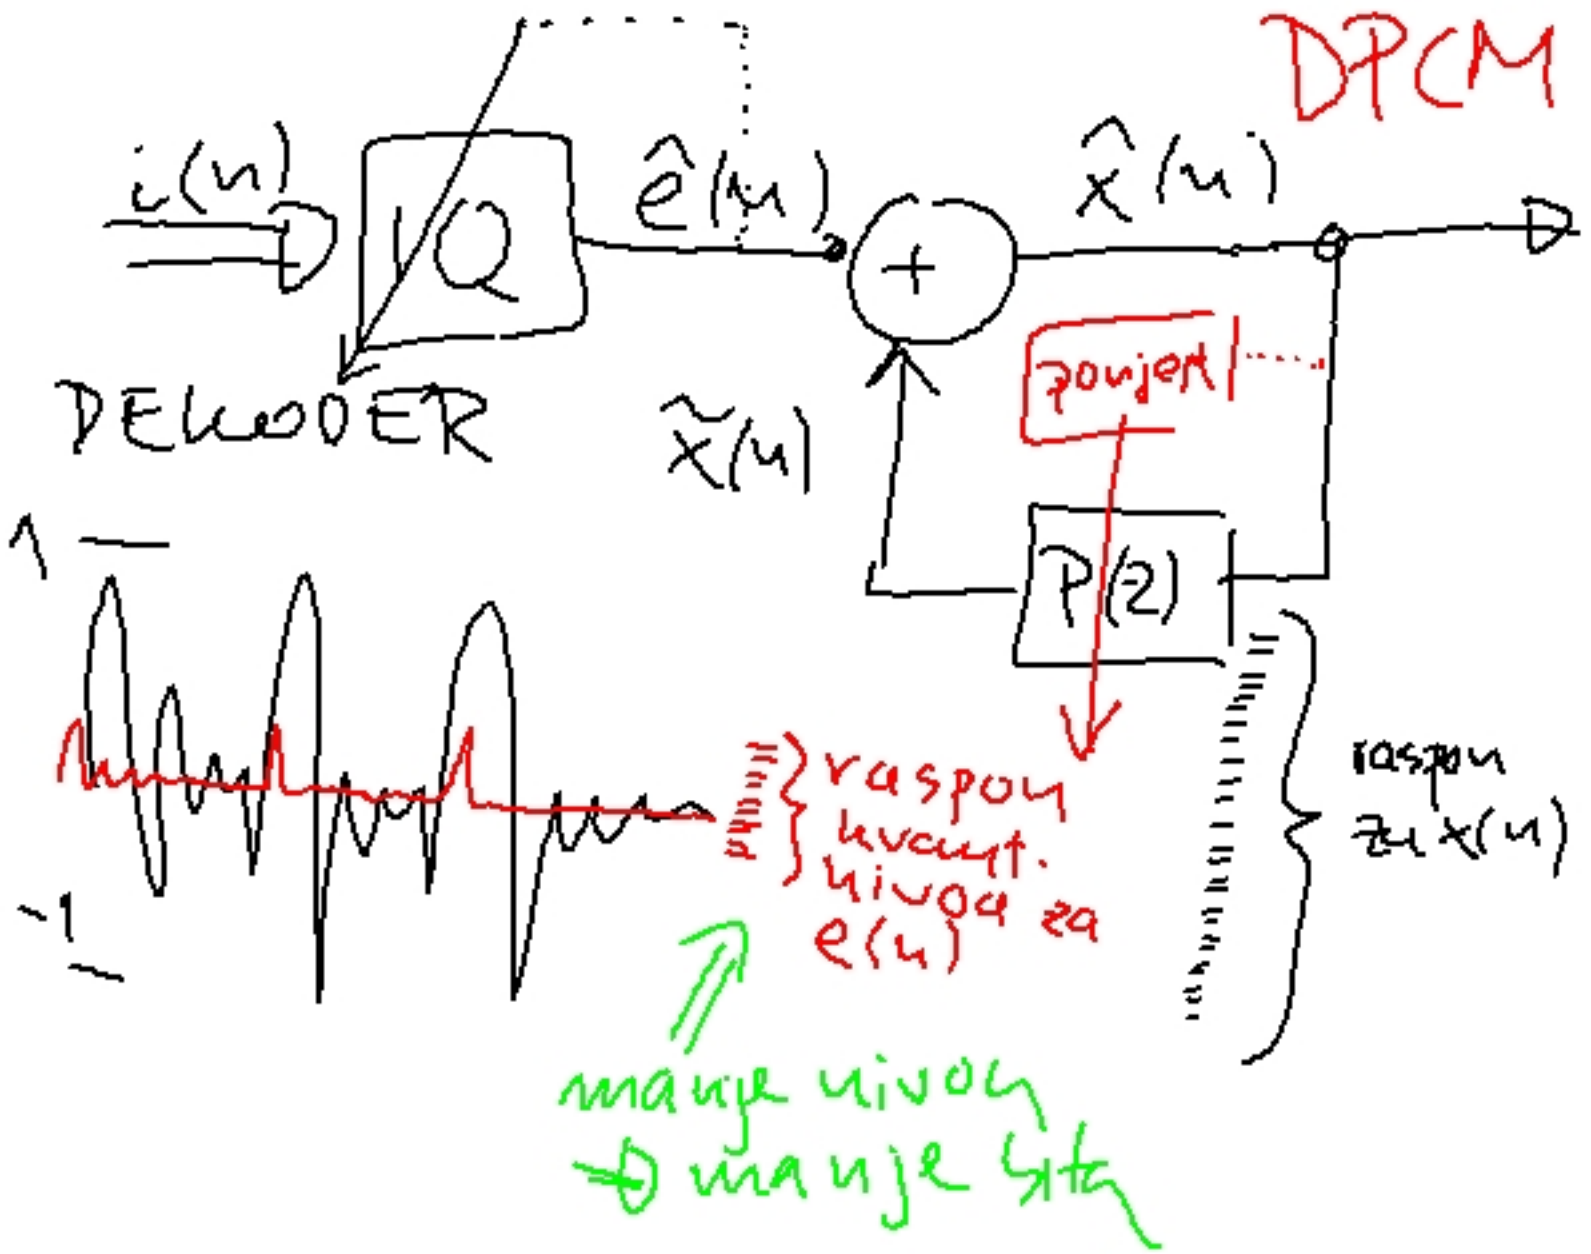 DPCM
i(n)
IQ
ê(n)
+
x̂(n)
DEKODER
x̃(n)
P(z)
1
-1
raspon
kvant.
nivoa za
e(n)
raspon
za x(n)
manje nivoa
→ manje bita